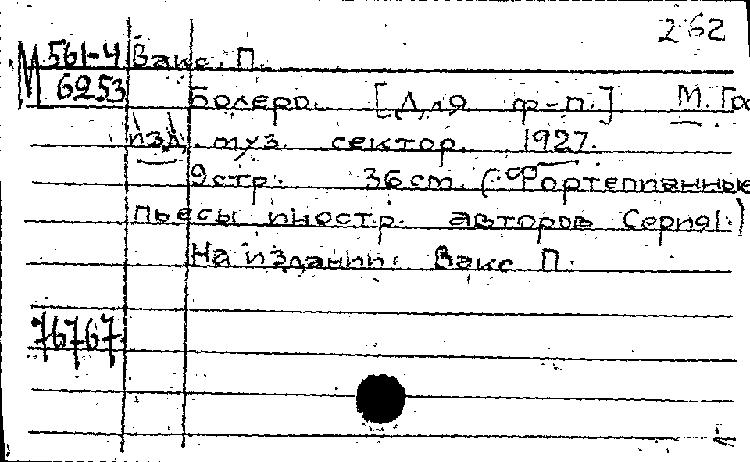 262
М 561-4 Вакс. П.
6253
Болеро. [Для ф-п.] М. Гос
изд. муз. сектор. 1927.
9стр. 36cm. (Фортепианные
пьесы иностр. авторов Серия1.)
На издании: Вакс П.
76767